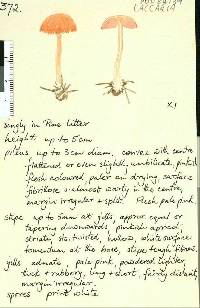 372.
LACCARIA
x1
singly in Pine litter
height up to 5cm
pileus up to 3cm diam, convex with centre
flattened or even slightly umbilicate, pinkish
flesh coloured paler on drying, surface
fibrillose & almost warty in the centre,
margin irregular & split. Flesh pale pink.
stipe up to 5mm at gills, approx equal or
tapering downwards, pinkish apical
striate, hollow, white surface
tomentum at the base, stipe tough, fibrous
gills adnate, pale pink, powdered lighter,
thick & rubbery, long & short, fairly distant,
margin irregular.
spores print white